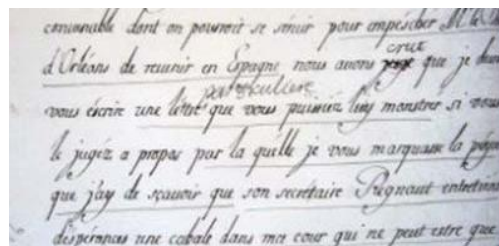 convenable dont on pourroit se servir pour empescher M. le
d'Orléans de revenir en Espagne nous avons crut que je
particuliere
vous écrire une lettre que vous puissiéz luy monstrer si vous
le jugéz a propos par la quelle je vous marquasse la
que j'ay de sçavoir que son secrétaire Regnaut
d'espérances une cabale dans ma cour qui ne peut estre que